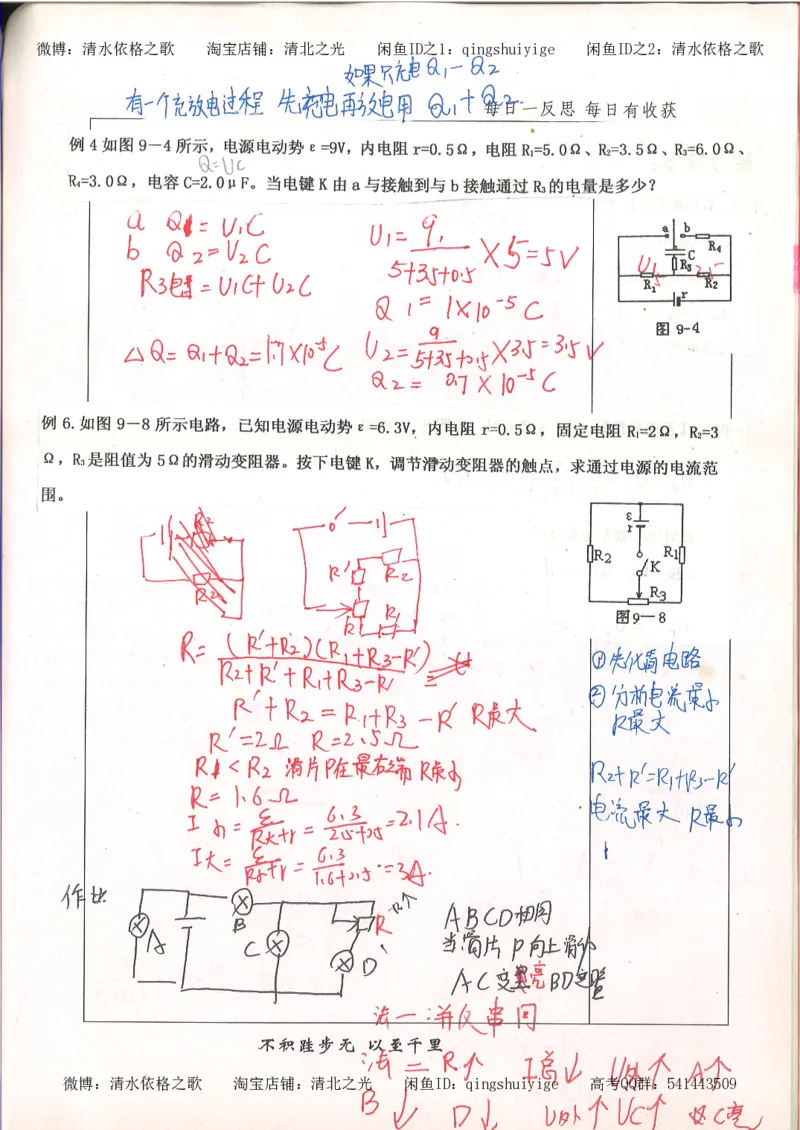 微博：清水依格之歌 淘宝店铺：清北之光 闲鱼ID之1：qingshuiyige 闲鱼ID之2：清水依格之歌
如果只充电Q₁-Q₂
有一个充放电过程 先充电再放电用 Q₁+Q₂
每日一反思 每日有收获
例4如图9-4所示，电源电动势ε=9V，内电阻r=0.5Ω，电阻R₁=5.0Ω、R₂=3.5Ω、R₃=6.0Ω、
Q=UC
R₄=3.0Ω，电容C=2.0μF。当电键K由a与接触到与b接触通过R₃的电量是多少？
a Q₁=U₁C
b Q₂=U₂C
R3电量=U₁C+U₂C
△Q=Q₁+Q₂=1.7×10⁻⁵C
U₁=9/(5+3.5+0.5)×5=5V
Q₁=1×10⁻⁵C
U₂=9/(5+3.5+0.5)×3.5=3.5V
Q₂=0.7×10⁻⁵C
a b
R₄
C
R₃
U₁
R₁ R₂
r
图9-4
例6.如图9-8所示电路，已知电源电动势ε=6.3V，内电阻r=0.5Ω，固定电阻R₁=2Ω，R₂=3
Ω，R₃是阻值为5Ω的滑动变阻器。按下电键K，调节滑动变阻器的触点，求通过电源的电流范
围。
R₂
R₂
R' R₂
R₁
ε
r
R₂ R₁
K
R₃
图9-8
R=(R'+R₂)(R₁+R₃-R')/(R₂+R'+R₁+R₃-R')
R'+R₂=R₁+R₃-R' R最大
R'=2Ω R=2.5Ω
R₁<R₂ 滑片P在最右端 R最小
R=1.6Ω
I小=ε/(R大+r)=6.3/(2.5+0.5)=2.1A.
I大=ε/(R小+r)=6.3/(1.6+0.5)=3A.
①先化简电路
②分析电流最小
R最大
R₂+R'=R₁+R₃-R'
电流最大 R最小
作业
A B C D R R↑
ABCD相同
当滑片P向上滑动
AC变亮 BD变暗
法一:并反串同
不积跬步无 以至千里
法二 R↑ I总↓ U外↑ A↑
微博：清水依格之歌 淘宝店铺：清北之光 闲鱼ID：qingshuiyige 高考QQ群：541443509
B↓ D↓ U外↑ UC↑ C亮